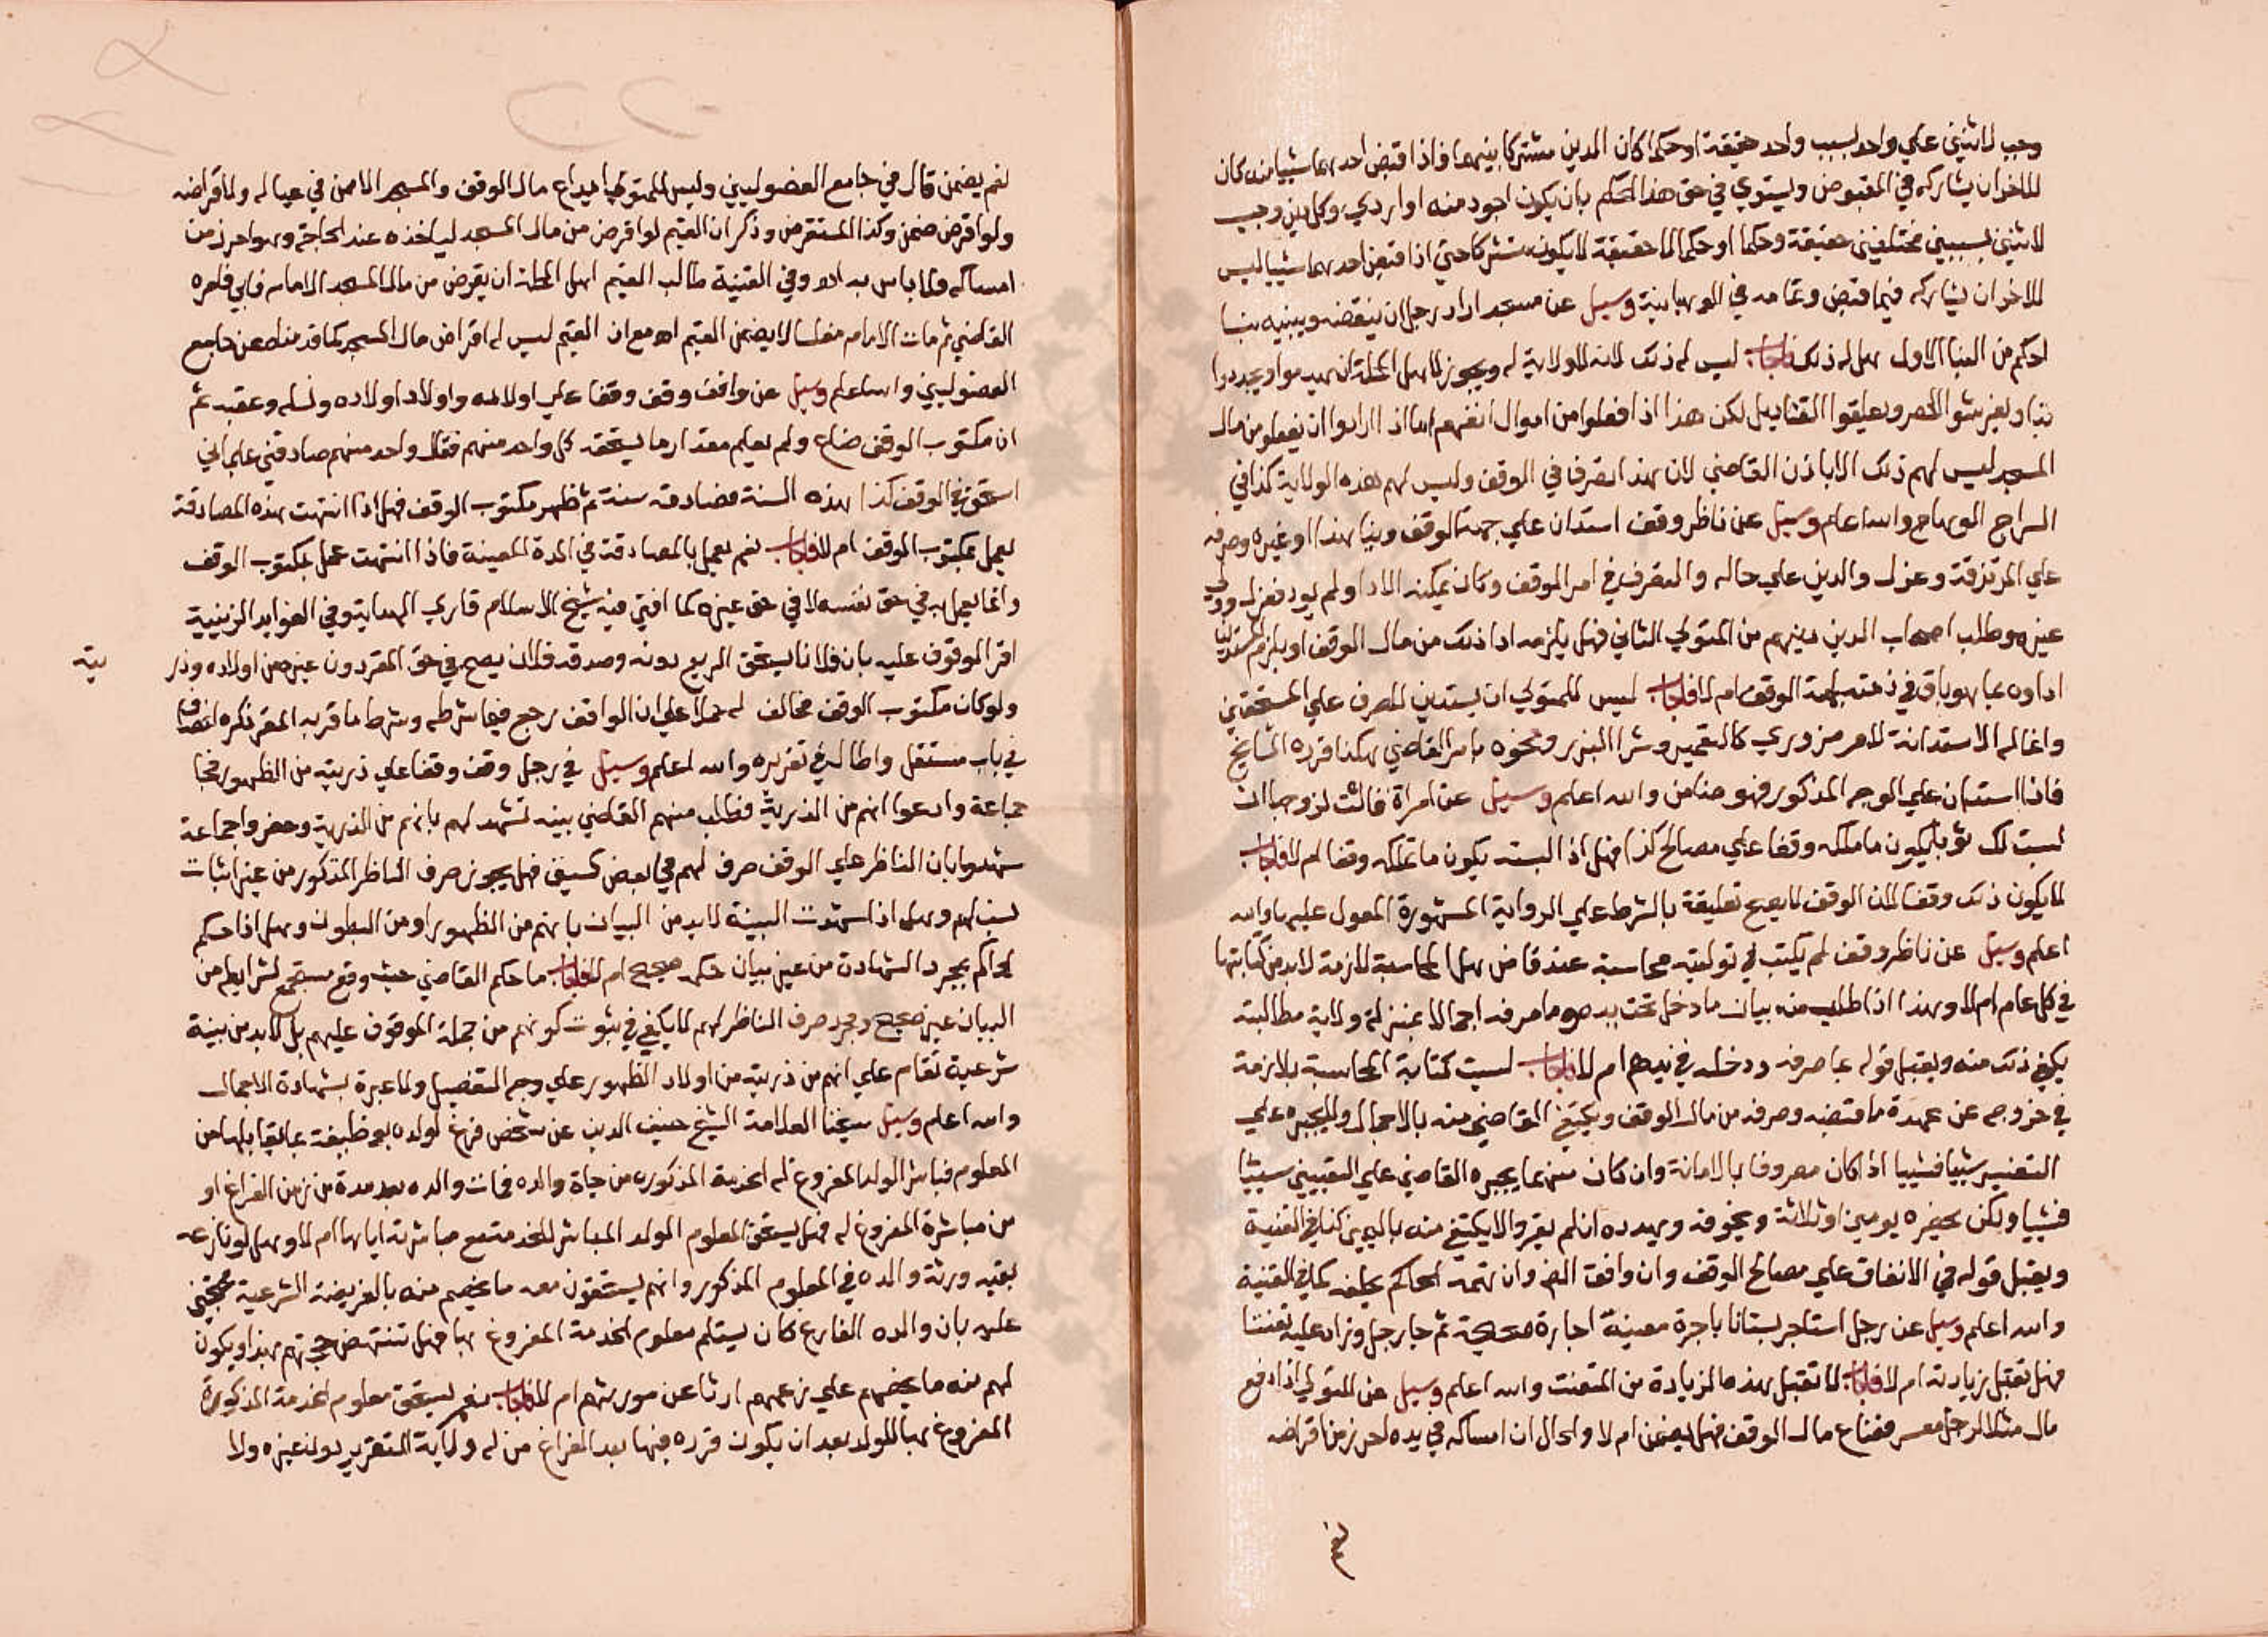 وجب لاثنين علي واحد بسبب واحد حقيقة او حكما كان الدين مشتركا بينهما فاذا قبض احدهما شييا منه كان
للاخر ان يشاركه في المقبوض ويستوي في حق هذا الحكم بان يكون اجود منه او اردي وكل دين وجب
لاثنين بسببين مختلفين حقيقة وحكما او حكما لا حقيقة لا يكون مشتركا حتي اذا قبض احدهما شييا ليس
للاخر ان يشاركه فيما قبض وتمامه في الوهبانية وسيل عن مسجد اراد رجل ان ينقضه ويبنيه بنا
احكم من البنا الاول هل له ذلك فاجاب ليس له ذلك لانه لا ولاية له ويجوز لاهل المحلة ان يهدموا ويجددوا
بنا ويفرشوا الحصر ويعلقوا القناديل لكن هذا اذا فعلوا من اموال انفسهم اما اذا ارادوا ان يفعلوا من مال
المسجد ليس لهم ذلك الا باذن القاضي لان هذا تصرفا في الوقف وليس لهم هذه الولاية كذا في
السراج الوهاج والله اعلم وسيل عن ناظر وقف استدان علي جهة الوقف وبنا بهذا او غيره وصرفه
علي المرتزقة وعزل والدين علي حاله والتصرف في امر الموقف وكان يمكنه الادا ولم يود فعزل وولي
غيره وطلب اصحاب الدين دينهم من المتولي الثاني فهل يلزمه ادا ذلك من مال الوقف او يلزم المستدين
اداوه بما هو باق في ذمته لجهة الوقف ام لا فاجاب ليس للمتولي ان يستدين للصرف علي المستحقين
وانما له الاستدانة لامر ضروري كالتعمير وشرا البذر ونحوه بامر القاضي هكذا قرره المشايخ
فاذا استدان علي الوجه المذكور فهو ضامن والله اعلم وسيل عن امراة قالت لزوجها ان
لبست لك ثوبا يكون ما ملكه وقفا علي مصالح كذا فهل اذا لبسته يكون ما تملكه وقفا ام لا فاجاب
لا يكون ذلك وقفا لان الوقف لا يصح تعليقه بالشرط علي الرواية المشهورة المعول عليها والله
اعلم وسيل عن ناظر وقف لم يكتب في توليته محاسبة عند قاض هل المحاسبة لازمة لابد من كتابتها
في كل عام ام لا وهذا اذا طلب منه بيان ما دخل تحت يده وما صرفه اجمالا بمنزلة ولاية مطالبته
يكفي ذلك منه ويقبل قوله بما صرفه ودخله في يده ام لا فاجاب ليست كتابة المحاسبة بلازمة
في خروجه عن عهدة ما قبضه وصرفه من مال الوقف ويكتفي القاضي منه بالاجمال ولا يجبره علي
التفسير شييا فشييا اذا كان معروفا بالامانة وان كان متهما يجبره القاضي علي التعيين شييا
فشييا ولكن يحضره يومين او ثلاثة ويخوفه ويهدده ان لم يفسر والا يكتفي منه باليمين كذا في القنية
ويقبل قوله في الانفاق علي مصالح الوقف وان وافق الظاهر وان اتهمه الحاكم يحلفه كما في القنية
والله اعلم وسيل عن رجل استاجر بستانا باجرة معينة اجارة صحيحة ثم جا رجل وزاد عليه تعنتا
فهل تقبل زيادته ام لا فاجاب لا تقبل هذه الزيادة من المتعنت والله اعلم وسيل عن المتولي اذا دفع
مال مثلا لرجل معسر فضاع مال الوقف فهل يضمن ام لا والحال ان امساكه في يده احرز من اقراضه
نعم
نعم يضمن قال في جامع الفصوليين وليس للمتولي ايداع مال الوقف والمسجد الا ممن في عياله ولا اقراضه
ولو اقرض ضمن وكذا المستقرض وذكر ان القيم لو اقرض من مال المسجد لياخذه عند الحاجة وهو احرز من
امساكه فلا باس به اه وفي القنية طالب القيم اهل المحلة ان يقرض من مال المسجد الامام فابي فامره
القاضي ثم مات الامام مفلسا لا يضمن القيم اه مع ان القيم ليس له اقراض مال المسجد كما قدمناه عن جامع
الفصوليين والله اعلم وسيل عن واقف وقف وقفا علي اولاده واولاد اولاده ونسله وعقبه ثم
ان مكتوب الوقف ضاع ولم يعلم مقدار ما يستحقه كل واحد منهم فقال واحد منهم صادقني علي اني
استحق في الوقف كذا هذه السنة فصادقه سنة ثم ظهر مكتوب الوقف فهل اذا انتهت هذه المصادقة
يعمل بمكتوب الوقف ام لا فاجاب نعم يعمل بالمصادقة في المدة المعينة فاذا انتهت عمل بمكتوب الوقف
وانما يعمل به في حق نفسه لا في حق غيره كما افتي فيه شيخ الاسلام قاري الهداية وفي الفوايد الزينية
اقر الموقوف عليه بان فلانا يستحق الريع دونه وصدقه فلان يصح في حق المقر دون غيره من اولاده وذر
يته
ولو كان مكتوب الوقف مخالف له حملا علي ان الواقف رجع فيما شرطه وشرط ما قر به المقر ذكره الخصاف
في باب مستقل واطال في تقريره والله اعلم وسيل في رجل وقف وقفا علي ذريته من الظهور فجا
جماعة وادعوا انهم من الذرية فطلب منهم القاضي بينة تشهد لهم بانهم من الذرية وحضر واجماعة
شهدوا بان الناظر علي الوقف صرف لهم في بعض كسيف فهل يجوز صرف الناظر المذكور من غير اثبات
نسبهم وهل اذا شهدت البينة لابد من البيان بانهم من الظهور او من البطون وهل اذا حكم
الحاكم بمجرد الشهادة من غير بيان حكمه صحيح ام لا فاجاب ما حكم القاضي حيث وقع مستجمع لشرايطه من
البيان غير صحيح ومجرد صرف الناظر لهم لا يكفي في ثبوت كونهم من جملة الموقوف عليهم بل لابد من بينة
شرعية تقام علي انهم من ذريته من اولاد الظهور علي وجه التفصيل ولا عبرة بشهادة الاجمال
والله اعلم وسيل شيخنا العلامة الشيخ حنيف الدين عن شخص فرغ لولده بوظيفة بما يقابلها من
المعلوم فباشر الولد المفروغ له الخدمة المذكورة من حياة والده فمات والده بعد مدة من زمن الفراغ او
من مباشرة المفروغ له فهل يستحق المعلوم الولد المباشر للخدمة مع مباشرته اياها ام لا وهل لو نازعه
بقيه ورثة والده في المعلوم المذكور وانهم يستحقون معه ما يخصهم منه بالفريضة الشرعية محتجين
عليه بان والده الفارغ كان يستلم معلوم الخدمة المفروغ بها فهل تنتهض حجتهم بهذا ويكون
لهم منه ما يخصهم علي زعمهم ارثا عن مورثهم ام لا فاجاب نعم يستحق معلوم الخدمة المذكورة
المفروغ بها للولد بعد ان يكون قرره فيها بعد الفراغ من له ولاية التقرير دون غيره ولا